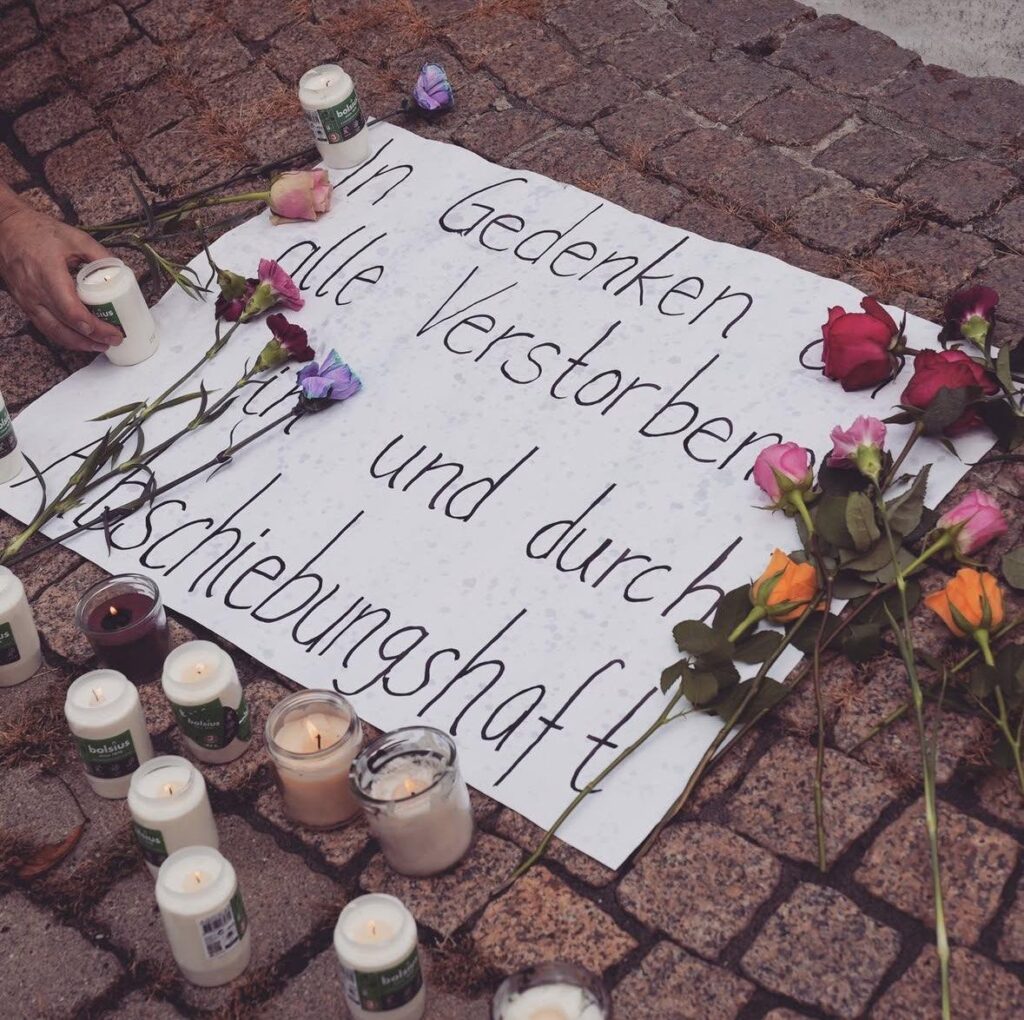 In Gedenken a
alle Verstorbenen
in und durch
Abschiebungshaft
bolsius
bolsius
bolsius
bolsius